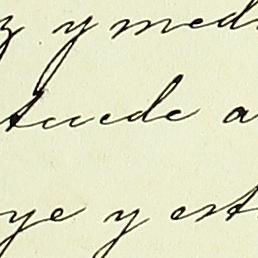 z y med
tuede a
ye y est